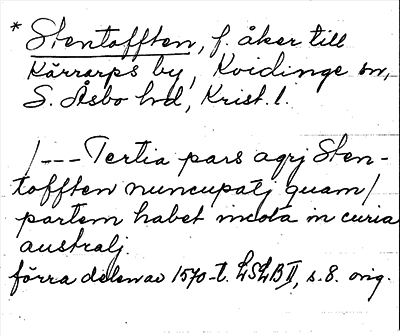 * Stentofften, f. åker till
Kärrarps by, Kvidinge sn,
S. Åsbo hd, Krist. l.
/--- Tertia pars agrj Sten-
tofften nuncupatj quam/
partem habet incola in curia
australj.
förra delen av 1570-t. LSLB II, s. 8. orig.